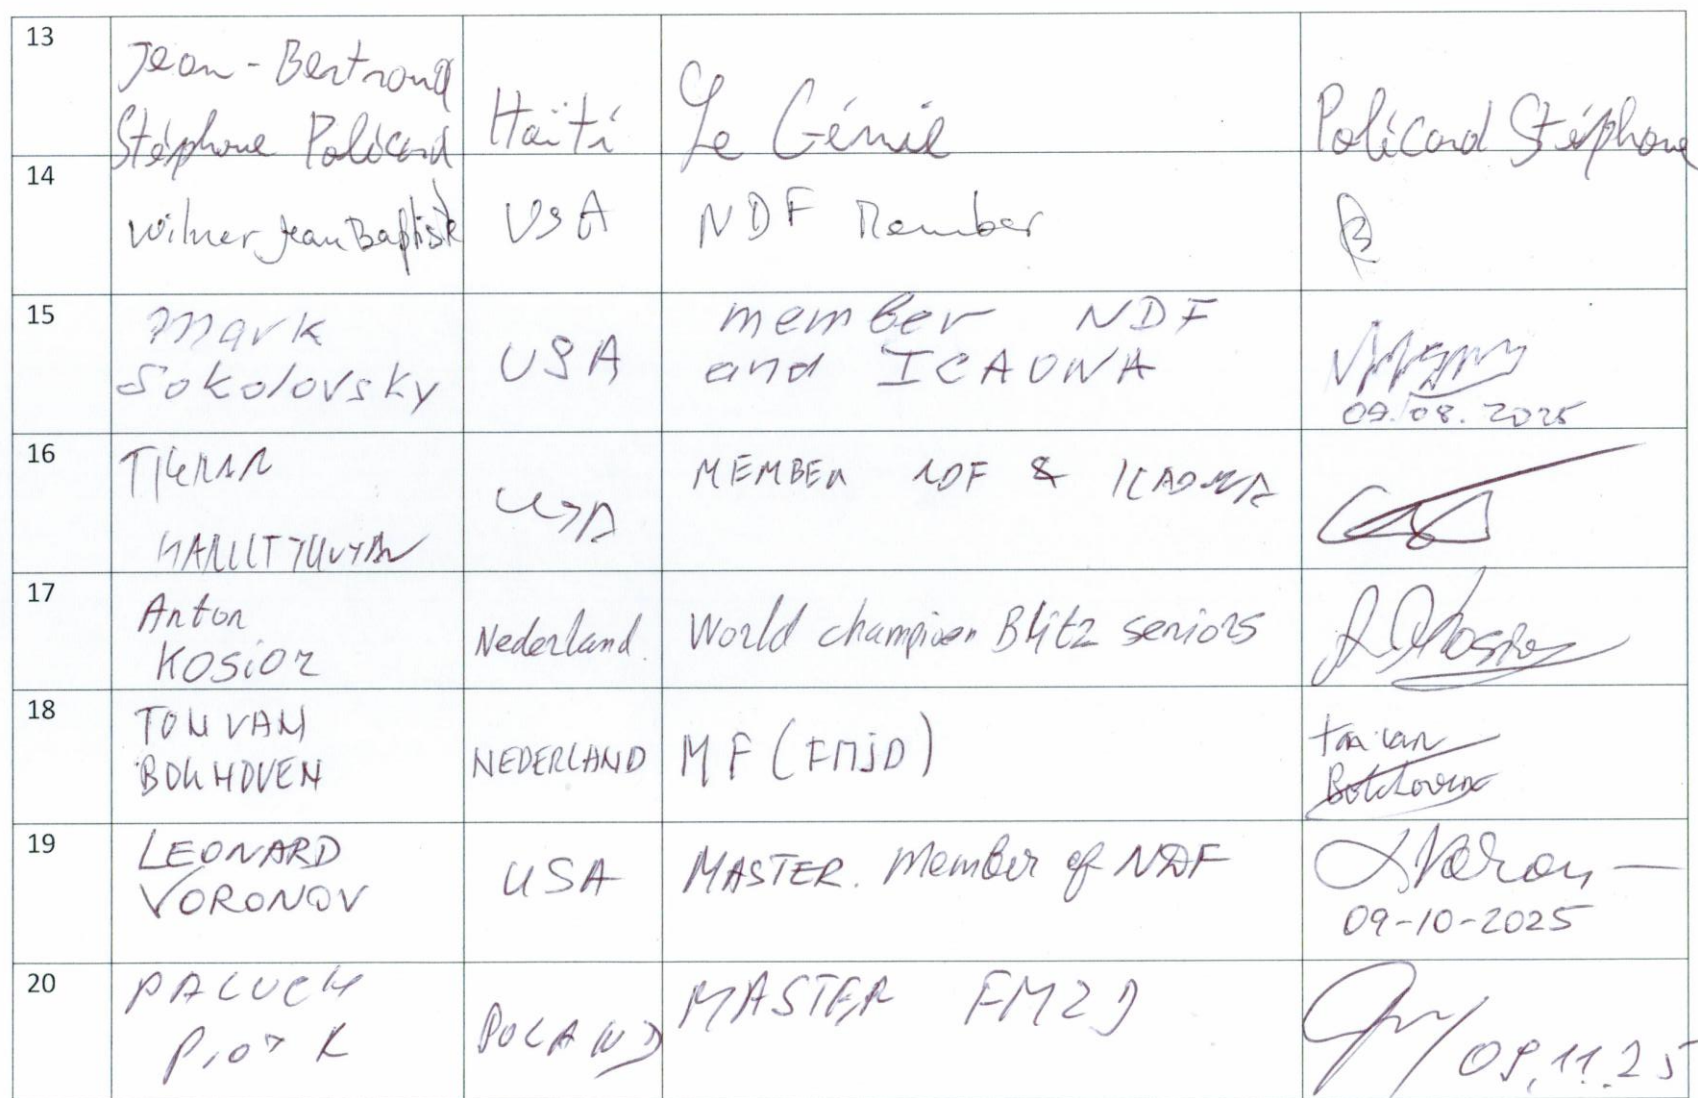 13
Jean-Bertrand
Stéphane Policard
Haïti
Le Génie
Policard Stéphane
14
Wilner Jean Baptiste
USA
NDF Member
15
Mark
Sokolovsky
USA
member NDF
and ICAONA
09.08.2025
16
USA
MEMBER NDF &
17
Anton
Kosior
Nederland.
World champion Blitz seniors
18
TON VAN
BOKHOVEN
NEDERLAND
MF (FMJD)
Ton van
Bokhoven
19
LEONARD
VORONOV
USA
MASTER. Member of NDF
09-10-2025
20
PALUCH
Piotr
POLAND
MASTER FMJD
09.11.25